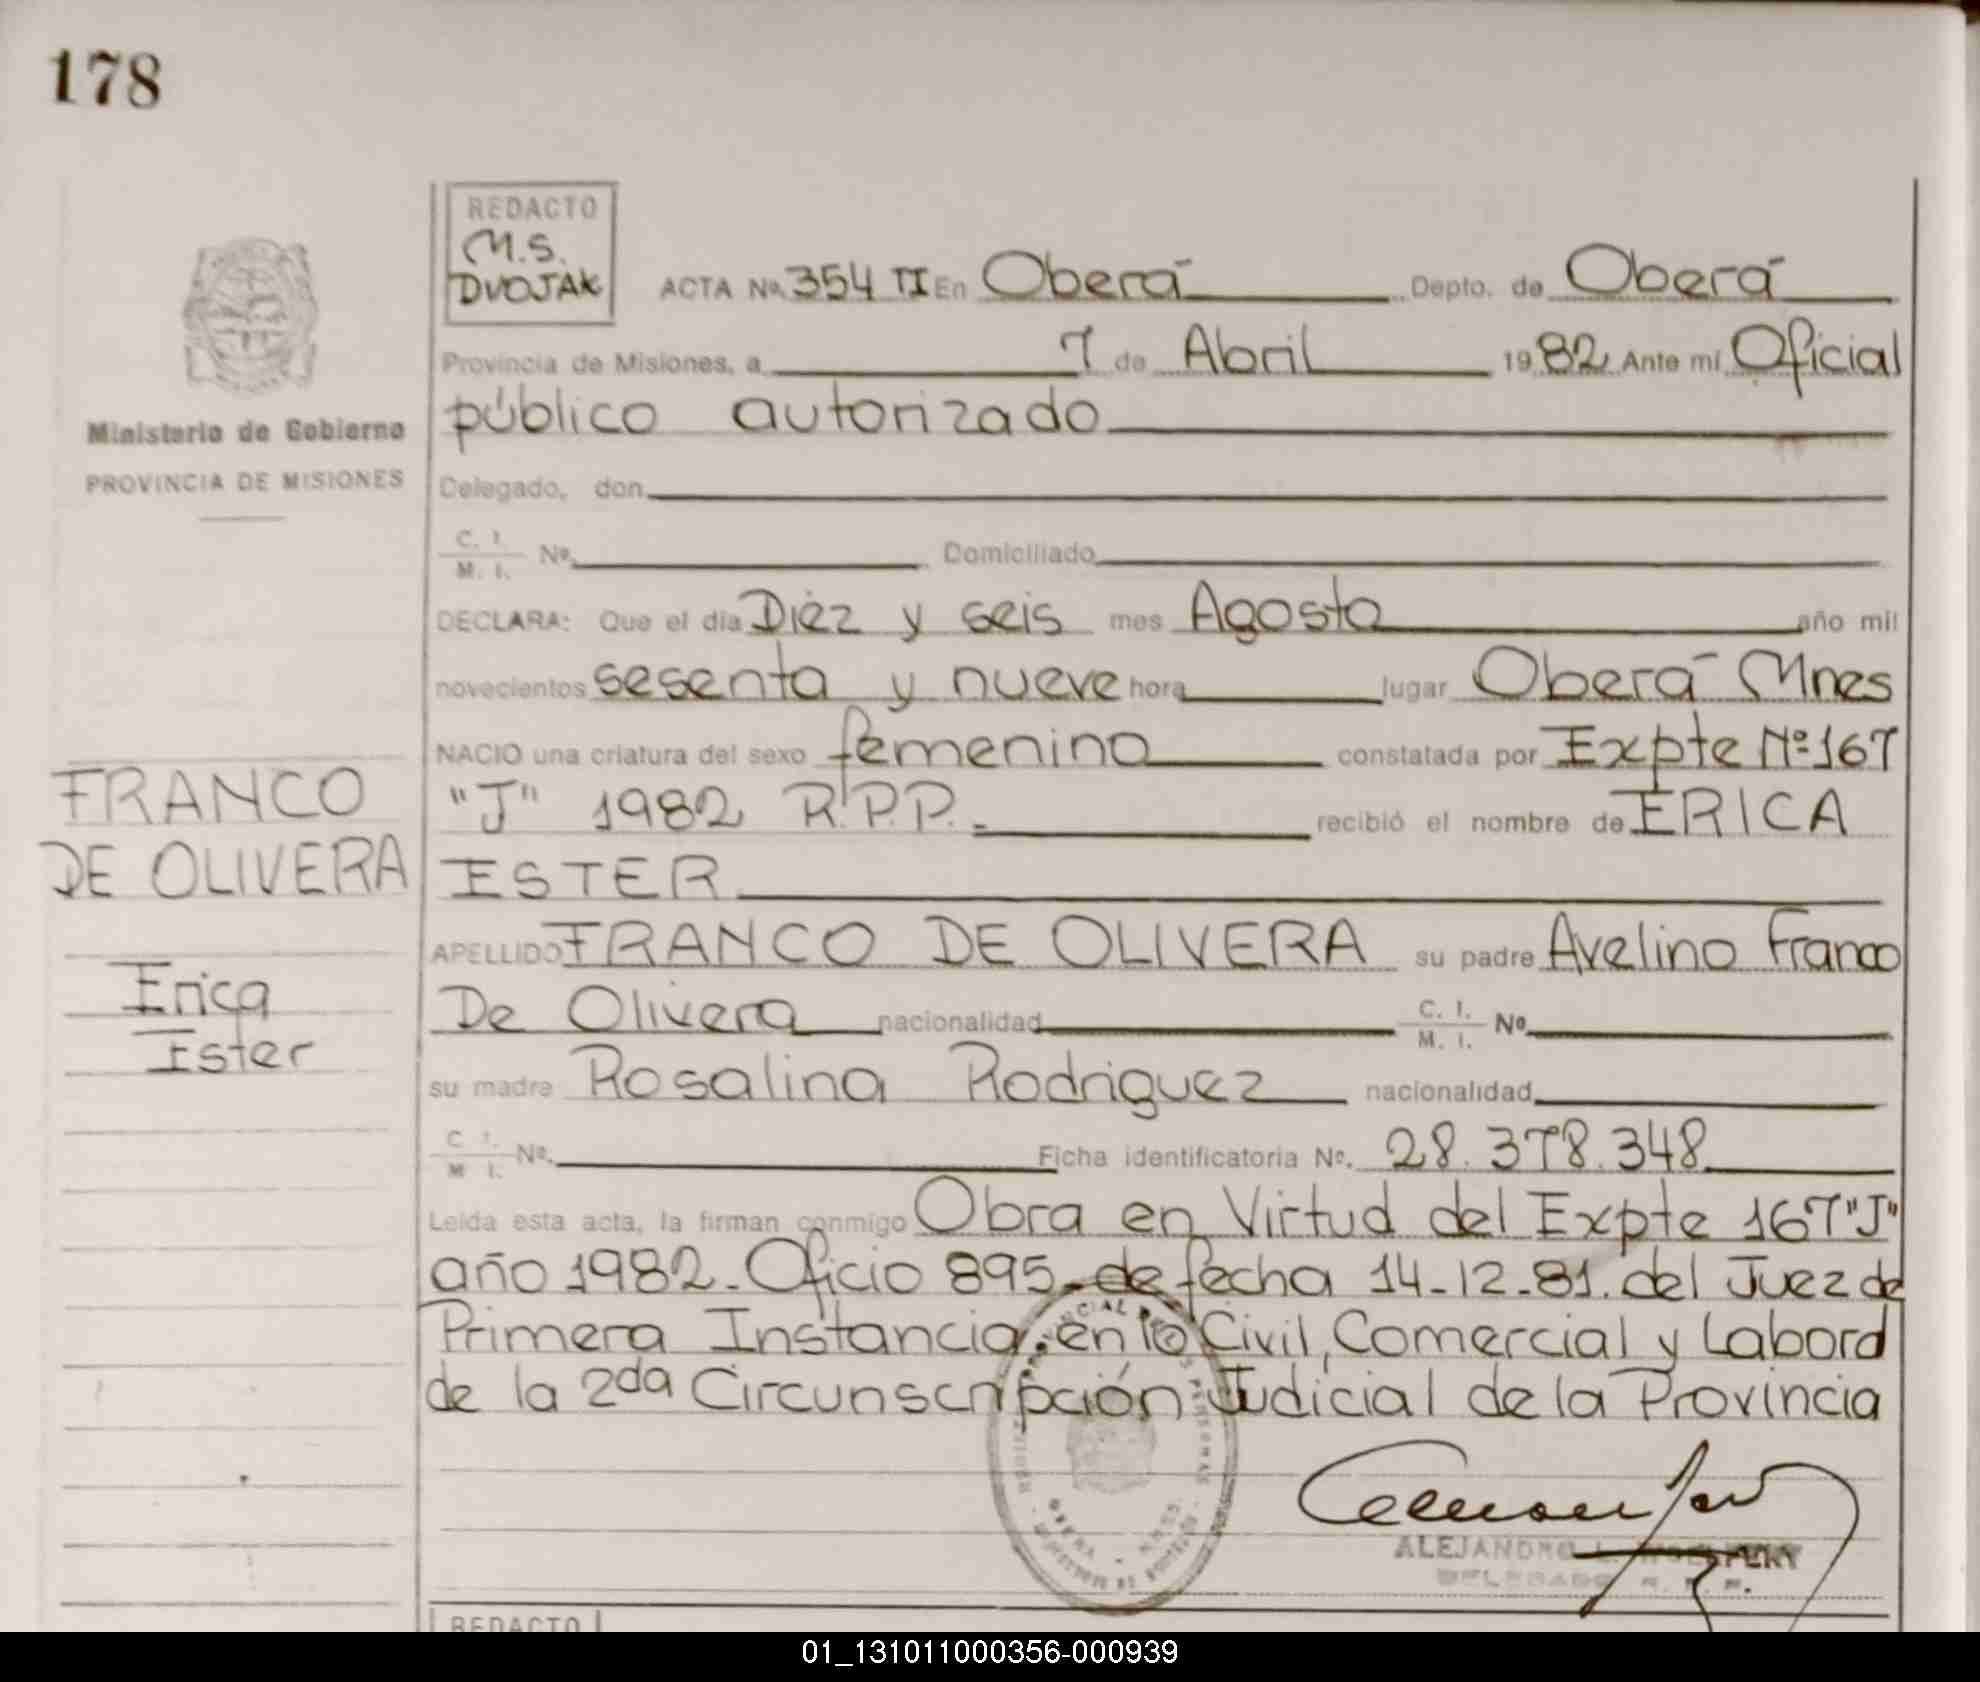 178
REDACTO
M.S.
DVOJAK
ACTA No. 354 TI En Oberá Depto. de Oberá
Provincia de Misiones, a 7 de Abril 1982 Ante mí Oficial
público autorizado
Ministerio de Gobierno
PROVINCIA DE MISIONES
Delegado, don
C. I.
M. I. No. Domiciliado
DECLARA: Que el día Diéz y seis mes Agosto año mil
novecientos sesenta y nueve hora lugar Oberá Mnes
NACIO una criatura del sexo femenino constatada por Expte Nº 167
"J" 1982 R.P.P. recibió el nombre de ERICA
ESTER
FRANCO
DE OLIVERA
Erica
Ester
APELLIDO FRANCO DE OLIVERA su padre Avelino Franco
De Olivera nacionalidad C. I.
M. I. No
su madre Rosalina Rodriguez nacionalidad
C. I.
M. I. No. Ficha identificatoria No. 28.378.348
Leída esta acta, la firman conmigo Obra en Virtud del Expte 167 "J"
año 1982. Oficio 895 de fecha 14-12-81. del Juez de
Primera Instancia en lo Civil, Comercial y Laboral
de la 2da Circunscripción Judicial de la Provincia
ALEJANDRO L.
DELEGADO R. P. P.
REDACTO
01_131011000356-000939